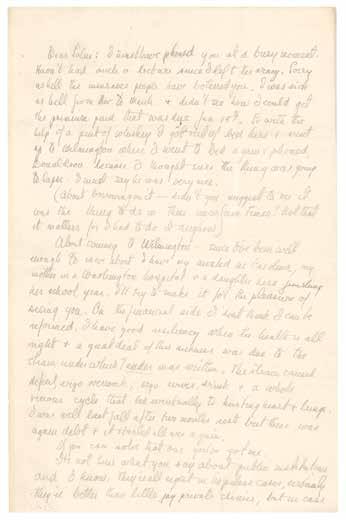 Dear John: I must have phoned you at a busy moment.
Haven't had such a lecture since I left the army. Sorry
as hell the insurance people have bothered you. I was sick
as hell from Nov to March & didn't see how I could get
the premium paid that was due Jan 15th. So with the
help of a pint of whiskey I got out of bed here & went
up to Wilmington where I went to bed again & phoned
because I thought sure the thing was going
to lapse. I must say he was very nice.
(About borrowing on it — didn't you suggest to me it
was the thing to do in these uncertain times? Not that
it matters for I had to do it anyhow)
About coming to Wilmington — since I've been well
enough to move about I have my invalid in Carolina, my
mother in a Washington hospital & a daughter here finishing
her school year. I'll try to make it for the pleasure of
seeing you. On the financial side I don't think I can be
reformed. I have good resiliency when the health is all
right & a great deal of this sickness was due to the
strain under which Tender was written. The illness caused
debts, ergo overwork, ergo nerves, drink & a whole
vicious cycle that led eventually to hurting heart & lungs.
I was well last fall after two months rest but there was
again debt & it started all over again.
If you can solve that one you've got me.
It's not true what you say about public institutions
and I know. They're all right in hopeless cases, certainly
they're better than little pay private clinics, but in case